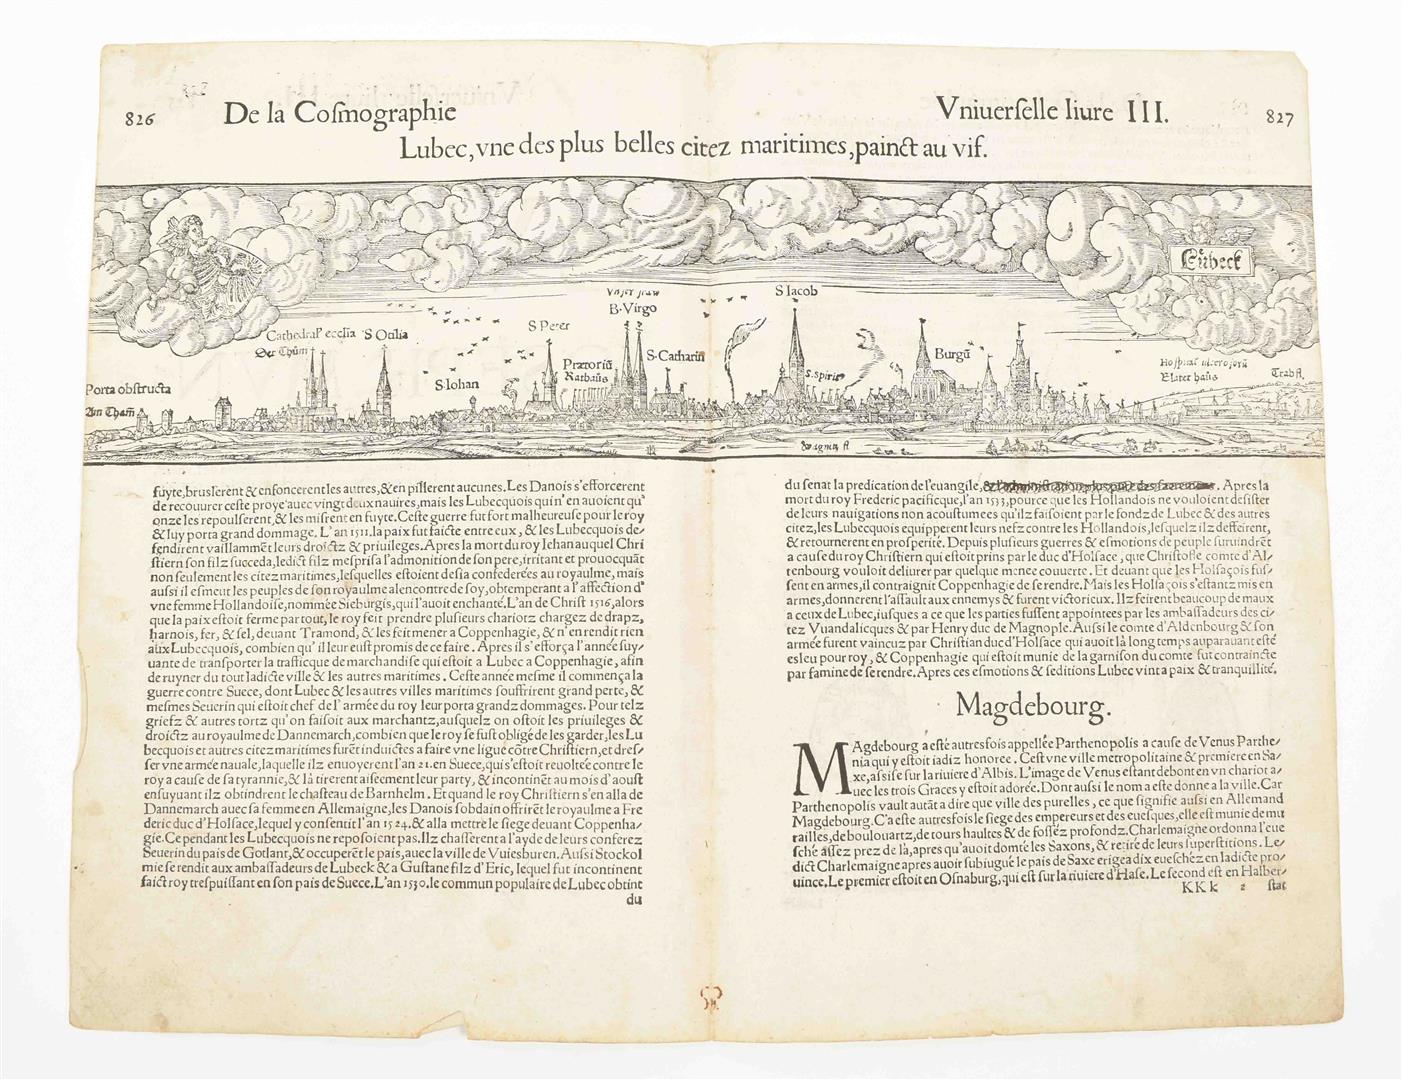 826 De la Cosmographie
Vniuerselle liure III. 827
Lubec, vne des plus belles citez maritimes, painct au vif.
Lübeck
S Iacob
B. Virgo
Cathedral' ecclia S Otilia
Der Thům
S Peter
Prætoriũ
Rathaůs
S. Catharin
Burgũ
S. Spirit
S. Iohan
Elater haůs
Porta obstructa
Wagnitz fl
fuyte, bruslerent & enfoncerent les autres, & en pillerent aucunes. Les Danois s'efforcerent
de recouurer ceste proye auec vingt deux nauires, mais les Lubecquois qui n'en auoient qu'
onze les repoulserent, & les misrent en fuyte. Ceste guerre fut fort malheureuse pour le roy
& luy porta grand dommage. L'an 1511. la paix fut faicte entre eux, & les Lubecquois de/
fendirent vaillammẽt leurs droictz & priuileges. Apres la mort du roy Iehan auquel Chri
stiern son filz succeda, ledict filz mesprisa l'admonition de son pere, irritant et prouocquãt
non seulement les citez maritimes, lesquelles estoient desia confederées au royaulme, mais
aussi il esmeut les peuples de son royaulme alencontre de soy, obtemperant a l'affection d'
vne femme Hollandoise, nommée Sieburgis, qui l'auoit enchanté. L'an de Christ 1516, alors
que la paix estoit ferme par tout, le roy feit prendre plusieurs chariotz chargez de drapz,
harnois, fer, & sel, deuant Tramond, & les feit mener a Coppenhagie, & n'en rendit rien
aux Lubecquois, combien qu'il leur eust promis de ce faire. Apres il s'efforça l'année suy/
uante de transporter la trafficque de marchandise qui estoit a Lubec a Coppenhagie, afin
de ruyner du tout ladicte ville & les autres maritimes. Ceste année mesme il commença la
guerre contre Suece, dont Lubec & les autres villes maritimes souffrirent grand perte, &
mesmes Seuerin qui estoit chef de l'armée du roy leur porta grandz dommages. Pour telz
griefz & autres tortz qu'on faisoit aux marchantz, ausquelz on ostoit les priuileges &
droictz au royaulme de Dannemarch, combien que le roy se fust obligé de les garder, les Lu
becquois et autres citez maritimes furẽt induictes a faire vne ligue cõtre Christiern, et dres/
ser vne armée nauale, laquelle ilz enuoyerent l'an 21. en Suece, qui s'estoit reuoltée contre le
roy a cause de sa tyrannie, & là tirerent aiseement leur party, & incontinẽt au mois d'aoust
ensuyuant ilz obtindrent le chasteau de Barnhelm. Et quand le roy Christiern s'en alla de
Dannemarch auec sa femme en Allemaigne, les Danois sobdain offrirẽt le royaulme a Fre
deric duc d'Holsace, lequel y consentit l'an 1524, & alla mettre le siege deuant Coppenha/
gie. Ce pendant les Lubecquois ne reposoient pas. Ilz chasserent a l'ayde de leurs conferez
Seuerin du pais de Gotlant, & occuperẽt le pais, auec la ville de Vuiesburen. Aussi Stockol
mie se rendit aux ambassadeurs de Lubeck & a Gustane filz d'Eric, lequel fut incontinent
faict roy trespuissant en son pais de Suece. L'an 1530. le commun populaire de Lubec obtint
du
du senat la predication de l'euangile, Apres la
mort du roy Frederic pacificque, l'an 1533, pource que les Hollandois ne vouloient desister
de leurs nauigations non acoustumees qu'ilz faisoient par le fondz de Lubec & des autres
citez, les Lubecquois equipperent leurs nefz contre les Hollandois, lesquelz ilz deffeirent,
& retournerent en prosperité. Depuis plusieurs guerres & esmotions de peuple suruindrẽt
a cause du roy Christiern qui estoit prins par le duc d'Holsace, que Christofle comte d'Al/
tenbourg vouloit deliurer par quelque menee couuerte. Et deuant que les Holsaçois fus/
sent en armes, il contraignit Coppenhagie de se rendre. Mais les Holsaçois s'estantz mis en
armes, donnerent l'assault aux ennemys & furent victorieux. Ilz feirent beaucoup de maux
a ceux de Lubec, iusques a ce que les parties fussent appointees par les ambassadeurs des ci/
tez Vuandalicques & par Henry duc de Magnople. Aussi le comte d'Aldenbourg & son
armée furent vaincuz par Christian duc d'Holsace qui auoit là long temps auparauant esté
esleu pour roy, & Coppenhagie qui estoit munie de la garnison du comte fut contraincte
par famine de se rendre. Apres ces esmotions & seditions Lubec vint a paix & tranquillité.
Magdebourg.
MAgdebourg a esté autresfois appellée Parthenopolis a cause de Venus Parthe/
nia qui y estoit iadiz honoree. C'est vne ville metropolitaine & premiere en Sa/
xe, assise sur la riuiere d'Albis. L'image de Venus estant debout en vn chariot a/
uec les trois Graces y estoit adorée. Dont aussi le nom a esté donne a la ville. Car
Parthenopolis vault autãt a dire que ville des purelles, ce que signifie aussi en Allemand
Magdebourg. C'a esté autresfois le siege des empereurs et des euesques, elle est munie de mu
railles, de boulouartz, de tours haultes & de fossez profondz. Charlemaigne ordonna l'eue
sché assez prez de là, apres qu'auoit domté les Saxons, & retiré de leurs superstitions. Le/
dict Charlemaigne apres auoir subiugué le pais de Saxe erigea dix eueschez en ladicte pro/
uince. Le premier estoit en Osnaburg, qui est sur la riuiere d'Hase. Le second est en Halber/
KKk 2 stat